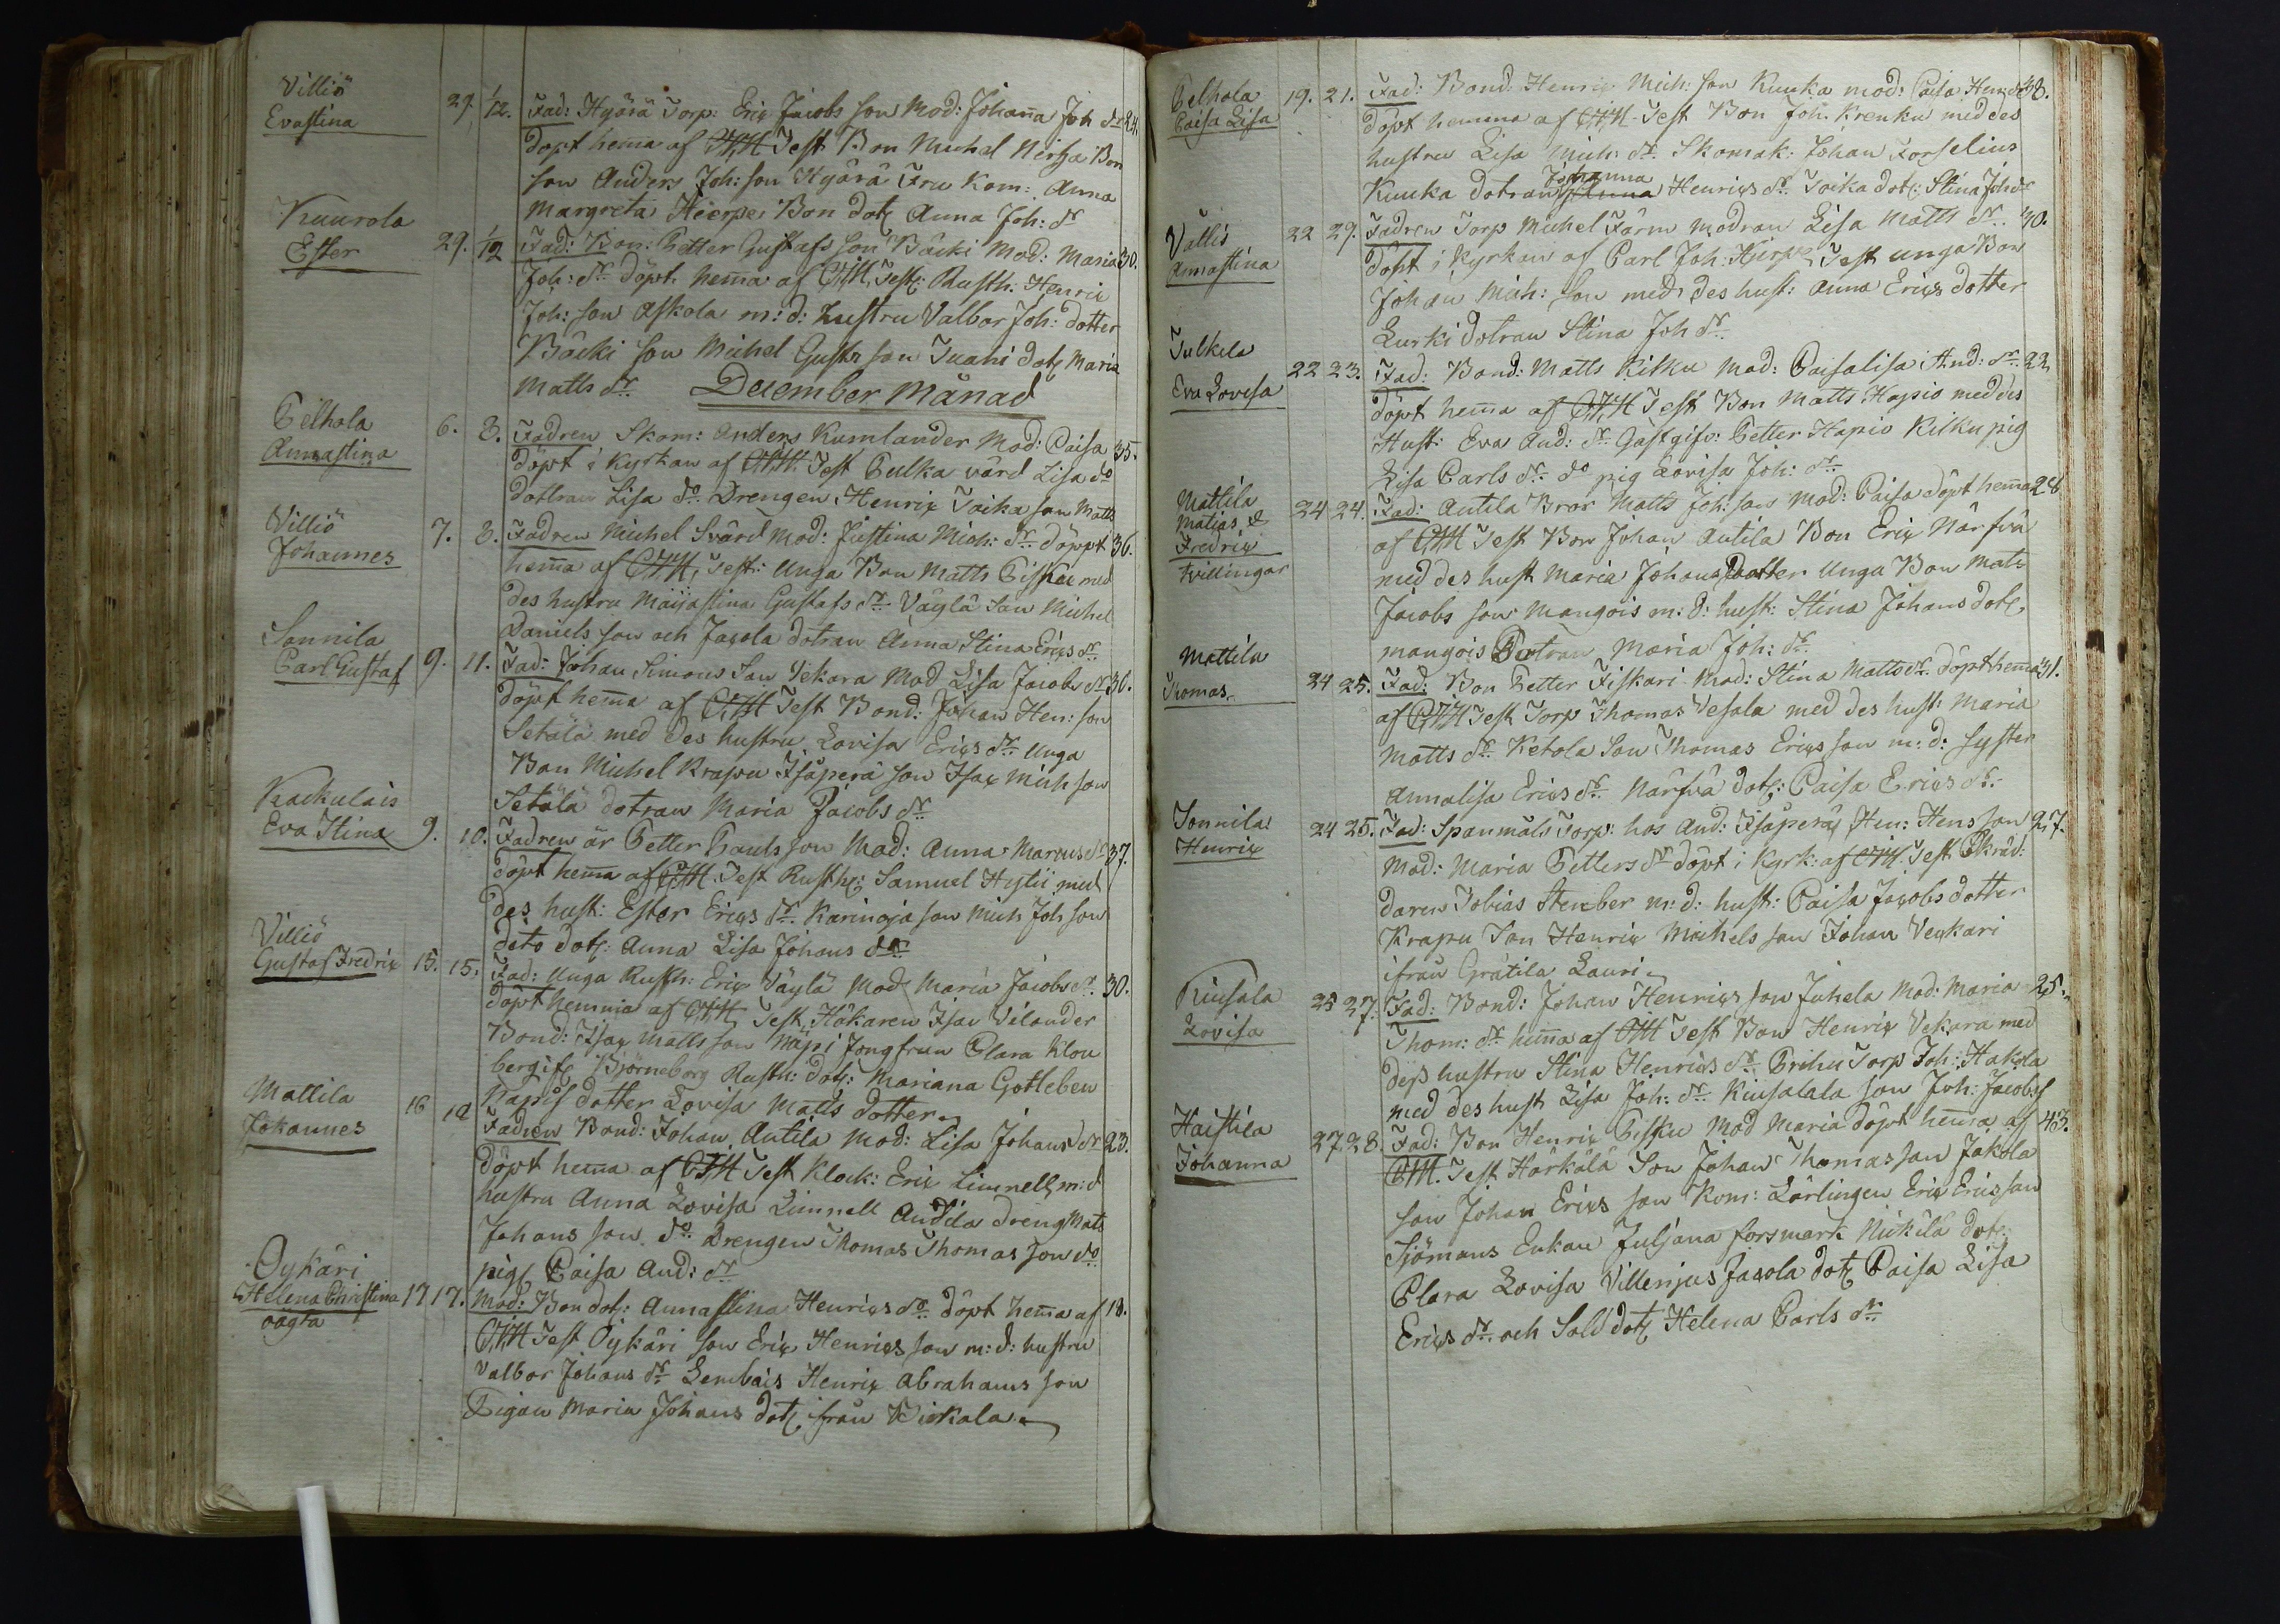 Villiö
Evastina
29. 1/12. Fad: Hyörä Torp: Eric Jacobs son Mod: Johanna Joh dr 24.
döpt hemma af Test Bon Michel
son Anders Joh: son Hyörä Fru Kom: Anna
Margreta Heerpe Bon dotr Anna Joh: dr
Kuurola
Ester
29. 1/12 Fad: Bon: Petter Gustafs son Bäcki Mod: Maria 30.
Joh: dr döpt hemma af Test: Rusth: Henric
Joh: son Askola m: d: hustru Valbor Joh: dotter
Bäcki son Michel Gust: son dotr Maria
Matts dr
December Månad
Pelhola
Annastina
6. 8. Fadren Skom: Anders Kumlander Mod: Caisa 35.
döpt i Kyrkan af Test Pulka värd Lisa do
dottran Lisa do Drengen Henrix Toika son Matts
Villiö
Johannes
7. 8. Fadren Michel Svärd Mod: Justina Mich: dr döppt 36.
hemma af Test: Unga Bon Matts Pisku med
des hustru Maijastina Gustafs dr Väylä son Michel
Daniels son och Jacola dotran Anna Stina Erics dr
Sonnila
Carl Gustaf
9. 11. Fad: Johan Simons son Mod Lisa Jacobs dr 36.
döpt hemma af Test Bond: Johan Hen: son
Setälä med des hustru Lovisa Erics dr Unga
Bon Michel Krapu Isoperä son Isac Mich son
Setälä dotran Maria Jacobs dr
Kackulais
Eva Stina
9. 10. Fadren är Petter Pauls son Mod: Anna Marcus dr 37.
döpt hemma af Test Rusth: Samuel Hytii med
des hust: Ester Erics dr Karinoja son Mich Joh son
deto dotr: Anna Lisa Johans dr
Villiö
Gustaf Fredric
15. 15. Fad: Unga Rusth: Eric Väylä Mod Maria Jacobs dr 30.
döpt hemma af Test Håkaren Isac Vilander
Bond: Isac Matts son Näpi Jungfrun Clara
Björneborg Rusth: dotr: Mariana Gotleben
dotter Lovisa Matts dotter
Mattila
Johannes
16 18 Fadren Bond: Johan Antila Mod: Lisa Johans dr 23.
döpt hemma af Test Klock: Eric Limnell m: d
hustru Anna Lovisa Limnell Andila dreng Mats
Johans son do Drengen Thomas Thomas son do
pig Caisa And: dr
Öykäri
Helena Christina
oägta
17 17. Mod: Bon dotr: Annastina Henrics dr döpt hemma af 18.
Test Öykäri son Eric Henrics son m: d: hustru
Valbor Johans dr Lembois Henrix Abrahams son
Pigan Maria Johans dotr ifrån Birkala
Pelhola
Caisa Lisa
19. 21. Fad: Bond: Henrix Mich: son Kuuka mod: Caisa Henr dr 38.
döpt hemma af Test Bon Joh: Krenku med des
hustru Lisa Mich: dr Skomak: Johan Forselius
Johanna
Kuuka dotran Anna Henrics dr Toika dotr: Stina Joh dr
Vallis
Annastina
22 29. Fadren Torp Michel Färm modran Lisa Matts dr 40.
döpt i Kyrkan af Carl Joh: Hierpe Test unga Bon
Johan Mich: son med des hust: Anna Erics dotter
Lurki dotran Stina Joh dr
Tulkela
Eva Lovisa
22 23. Fad: Bond: Matts Kilku Mod: Caisalisa And: dr 22
döpt hemma af Test Bon Matts Hapio med des
Hust: Eva And: dr Gästgifv: Petter Hapio Kilku pig
Lisa Carls dr do pig Lovisa Joh: dr
Mattila
Matias &
Fredric
tvillingar
24 24. Fad: Antila Bror Matts Joh: son Mod: Caisa döpt hemma 28
af Test Bon Johan Antila Bon Eric Närfvä
med des hust Maria Johans Dotter Unga Bon Mats
Jacobs son Mangois m: d: hust: Stina Johans dotr
mangois Dotran Maria Joh: dr
Mattila
Thomas
24 25. Fad: Bon Petter Fiskari Mod: Stina Matts dr döpt hemma 31.
af Test Torp Thomas Vesala med des hust: Maria
Matts dr Ketola son Thomas Erics son m: d: syster
Annalisa Erics dr Närfvä dotr: Caisa Erics dr
Sonnila
Henrix
24 25. Fad: Spanmåls Torp: hos And: Isoperä Hen: Hens son 27.
Mod: Maria Petters dr döpt i Kyrk: af Test Skräd:
daren Tobias Stenber m: d: hust: Caisa Jacobs dotter
Krapu Son Henrix Michels son Johan Venkari
ifrån Grätila Lauri
Kiusala
Lovisa
25 27. Fad: Bond: Johan Henrics son Juhela Mod: Maria 25.
Thom: dr hemma af Test Bon Henrix Vekara med
dess hustru Stina Henrics dr Prihu Torp Joh: Hakola
med des hust Lisa Joh: dr Kiusalala son Joh: Jacobs
Haistila
Johanna
27 28. Fad: Bon Henrix Pisku Mod Maria döpt hemma af 43.
Test Härkälä Son Johan Thomas son Jakola
son Johan Erics son Kom: Lärlingen Eric Erics son
Sjömans Enkan Juljana Forsmark Nickilä dotr
Clara Lovisa Villenjus Jacola dotr Caisa Lisa
Erics dr och Sold dotr Helena Carls dr